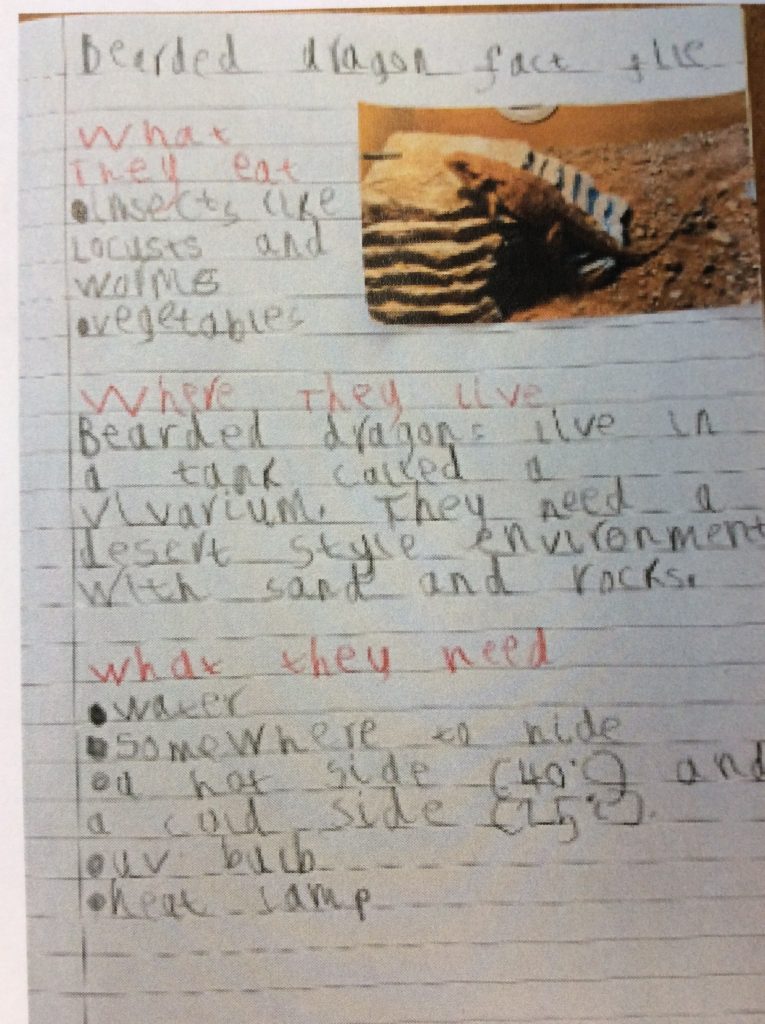 Bearded dragon fact flie
What
They eat
•insects like
Locusts and
worms
•vegetables
Where They live
Bearded dragons live in
a tank called a
vivarium. They need a
desert style environment
with sand and rocks.
what they need
•water
•somewhere to hide
•a hot side (40°C) and
a cold side (25°C).
•uv bulb
•heat lamp